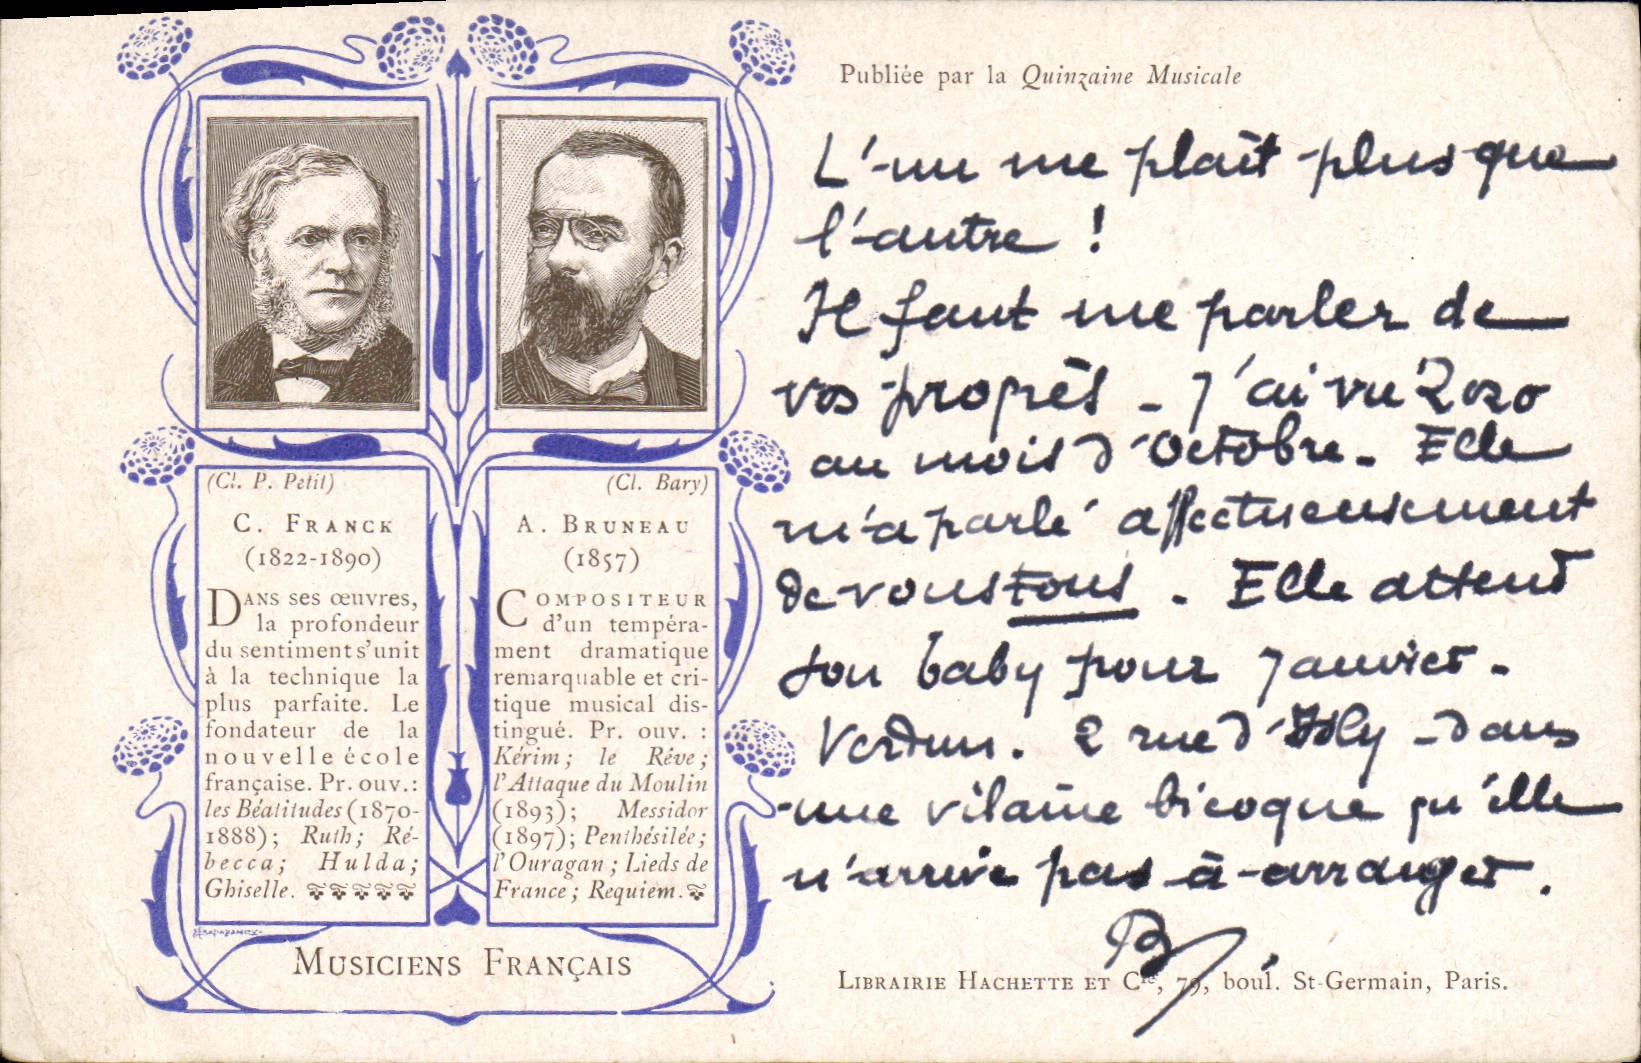 Publiée par la Quinzaine Musicale
(Cl. P. Petit)
C. FRANCK
(1822-1890)
DANS ses œuvres,
la profondeur
du sentiment s'unit
à la technique la
plus parfaite. Le
fondateur de la
nouvelle école
française. Pr. ouv.:
les Béatitudes (1870-
1888); Ruth; Ré-
becca; Hulda;
Ghiselle.
(Cl. Bary)
A. BRUNEAU
(1857)
COMPOSITEUR
d'un tempéra-
ment dramatique
remarquable et cri-
tique musical dis-
tingué. Pr. ouv. :
Kérim; le Rêve;
l'Attaque du Moulin
(1893); Messidor
(1897); Penthésilée;
l'Ouragan; Lieds de
France; Requiem.
MUSICIENS FRANÇAIS
L'un me plaît plus que
l'autre !
Il faut me parler de
vos progrès - J'ai vu Zozo
au mois d'Octobre. Elle
m'a parlé affectueusement
de vous tous. Elle attend
son baby pour Janvier.
Verdun. 2 rue d'Isly - dans
une vilaine bicoque qu'elle
n'arrive pas à arranger.
B
LIBRAIRIE HACHETTE ET Cie, 79, boul. St-Germain, Paris.